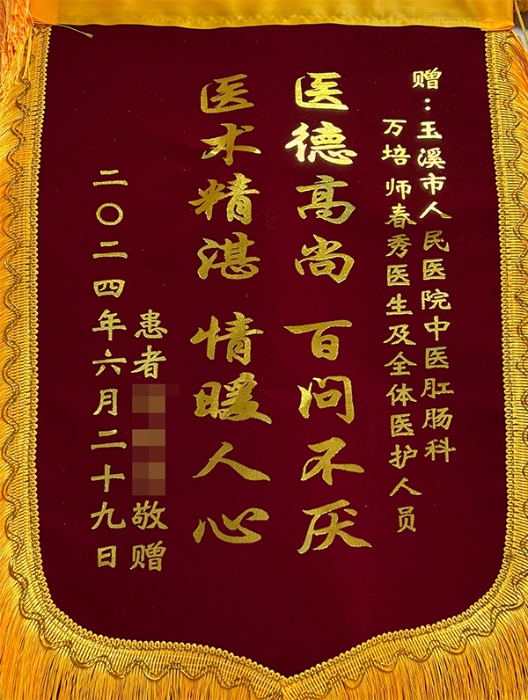 赠：玉溪市人民医院中医肛肠科
万培 师春秀医生及全体医护人员
医德高尚 百问不厌
医术精湛 情暖人心
患者 敬赠
二〇二四年六月二十九日